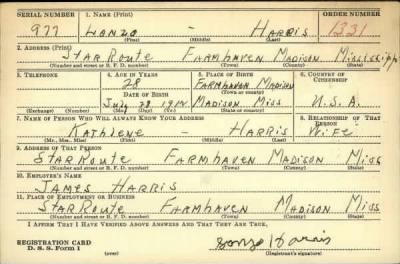 SERIAL NUMBER 1. NAME (Print) ORDER NUMBER
977 Lonzo - Harris 1331
(First) (Middle) (Last)
2. ADDRESS (Print)
Star Route Farmhaven Madison Mississipp
(Number and street or R. F. D. number) (Town) (County) (State)
3. TELEPHONE 4. AGE IN YEARS 5. PLACE OF BIRTH 6. COUNTRY OF CITIZENSHIP
28 Farmhaven Madison
DATE OF BIRTH
July 28 1912 Madison Miss U.S.A.
(Exchange) (Number) (Mo.) (Day) (Yr.) (Town) (County) (State)
7. NAME OF PERSON WHO WILL ALWAYS KNOW YOUR ADDRESS 8. RELATIONSHIP OF THAT PERSON
Kathlene - Harris Wife
(Mr., Mrs., Miss) (First) (Middle) (Last)
9. ADDRESS OF THAT PERSON
Star Route Farmhaven Madison Miss
(Number and street or R. F. D. number) (Town) (County) (State)
10. EMPLOYER'S NAME
James Harris
11. PLACE OF EMPLOYMENT OR BUSINESS
Star Route Farmhaven Madison Miss
(Number and street or R. F. D. number) (Town) (County) (State)
I AFFIRM THAT I HAVE VERIFIED ABOVE ANSWERS AND THAT THEY ARE TRUE.
REGISTRATION CARD
D. S. S. Form 1 (over) Lonzo Harris
(Registrant's signature)